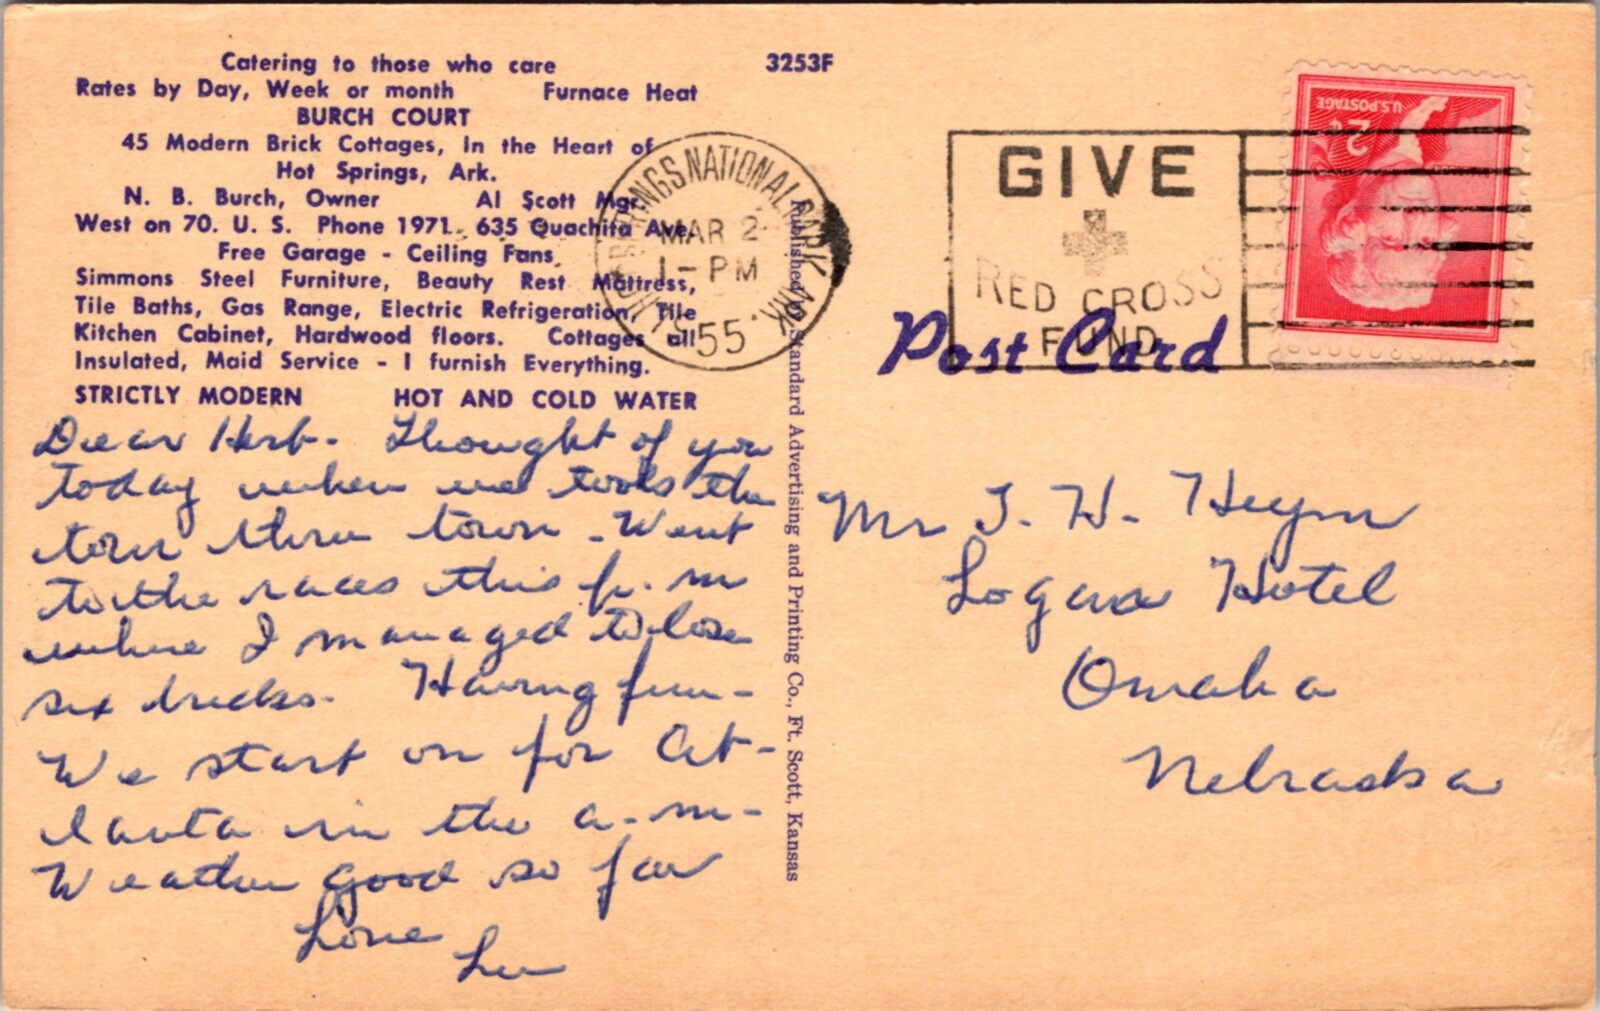 Catering to those who care
3253F
Rates by Day, Week or month Furnace Heat
BURCH COURT
45 Modern Brick Cottages, In the Heart of
Hot Springs, Ark.
N. B. Burch, Owner Al Scott Mgr.
West on 70. U. S. Phone 1971. 635 Quachita Ave.
Free Garage - Ceiling Fans
Simmons Steel Furniture, Beauty Rest Mattress,
Tile Baths, Gas Range, Electric Refrigeration, Tile
Kitchen Cabinet, Hardwood floors. Cottages all
Insulated, Maid Service - I furnish Everything.
STRICTLY MODERN HOT AND COLD WATER
Dear Herb - Thought of you
today when we took the
tour thru town - Went
to the races this p. m
where I managed to lose
six bucks - Having fun -
We start on for At-
lanta in the a - m -
Weather good so far
Love
Lu
Published by Standard Advertising and Printing Co., Ft. Scott, Kansas
SPRINGS NATIONAL PARK ARK.
MAR 2
1 - PM
55
GIVE
RED CROSS
FUND
U.S. POSTAGE
2¢
Post Card
Mr H.
Logan Hotel
Omaha
Nebraska